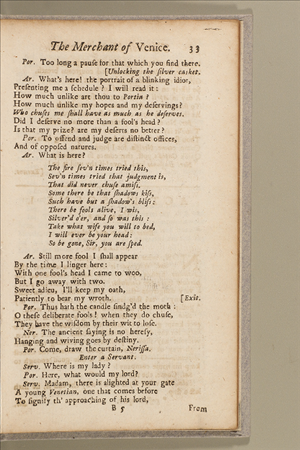 The Merchant of Venice. 33
Por. Too long a pause for that which you find there.
[Unlocking the silver casket.
Ar. What's here! the portrait of a blinking idiot,
Presenting me a schedule? I will read it:
How much unlike art thou to Portia?
How much unlike my hopes and my deservings?
Who chuses me shall have as much as he deserves.
Did I deserve no more than a fool's head?
Is that my prize? are my deserts no better?
Por. To offend and judge are distinct offices,
And of opposed natures.
Ar. What is here?
The fire sev'n times tried this,
Sev'n times tried that judgment is,
That did never chuse amiss,
Some there be that shadows kiss,
Such have but a shadow's bliss:
There be fools alive, I wis,
Silver'd o'er, and so was this:
Take what wife you will to bed,
I will ever be your head:
So be gone, Sir, you are sped.
Ar. Still more fool I shall appear
By the time I linger here:
With one fool's head I came to woo,
But I go away with two.
Sweet adieu, I'll keep my oath,
Patiently to bear my wroth. [Exit.
Por. Thus hath the candle sindg'd the moth:
O these deliberate fools! when they do chuse,
They have the wisdom by their wit to lose.
Ner. The ancient saying is no heresy,
Hanging and wiving goes by destiny.
Por. Come, draw the curtain, Nerissa.
Enter a Servant.
Serv. Where is my lady?
Por. Here, what would my lord?
Serv. Madam, there is alighted at your gate
A young Venetian, one that comes before
To signify th' approaching of his lord,
B 5 From